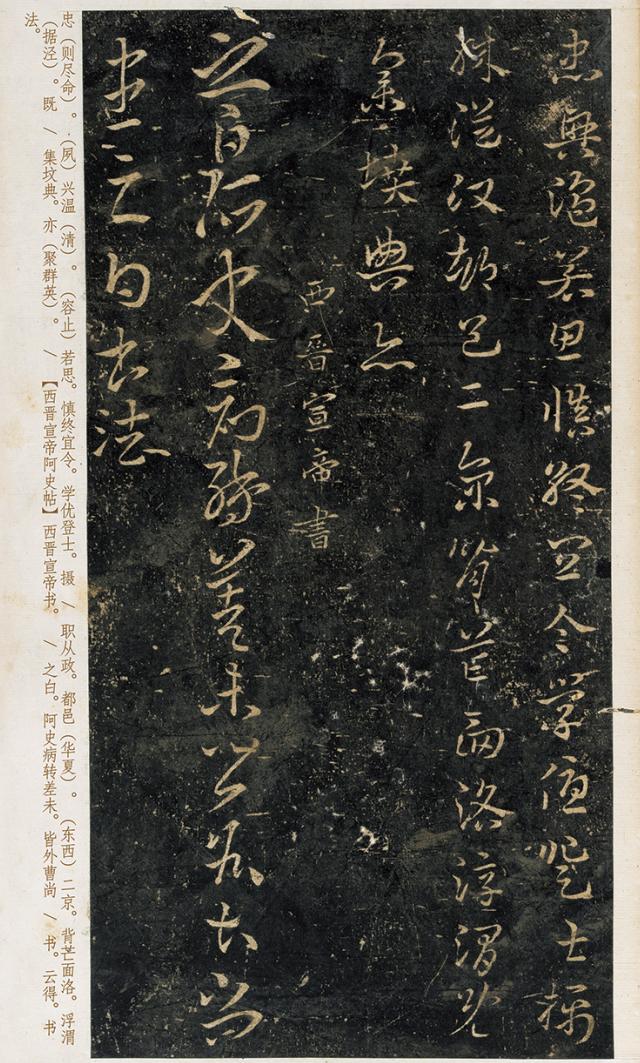 忠興溫若思慎終宜令學優登士攝
職從政都邑二京背芒面洛浮渭既
集墳典亦
西晉宣帝書
之白阿史病轉差未皆外曹尚
書云得書法
忠（则尽命）。（夙）兴温（清）。（容止）若思。慎终宜令。学优登士。摄 / 职从政。都邑（华夏）。（东西）二京。背芒面洛。浮渭
（据泾）。既 / 集坟典。亦（聚群英）。 / 【西晋宣帝阿史帖】西晋宣帝书。 / 之白。阿史病转差未。皆外曹尚 / 书。云得。书
法。